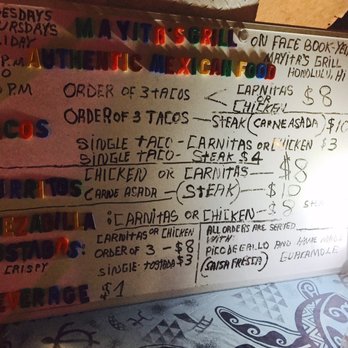 MAYITA'S GRILL
ON FACE BOOK-YEL
MAYITA'S GRILL
HONOLULU, HI
AUTHENTIC MEXICAN FOOD
ORDER OF 3 TACOS < CARNITAS OR CHICKEN $8
ORDER OF 3 TACOS — STEAK (CARNE ASADA) $10
SINGLE TACO - CARNITAS OR CHICKEN $3
SINGLE TACO - STEAK $4
CHICKEN OR CARNITAS — $8
CARNE ASADA — (STEAK) — $10
: CARNITAS OR CHICKEN — $8
CARNITAS OR CHICKEN
ORDER OF 3 - $8
SINGLE - TOSTADA $3
CRISPY
ALL ORDERS ARE SERVED
WITH
PICO DE GALLO AND
(SALSA FRESCA) GUACAMOLE
EVERAGE $1